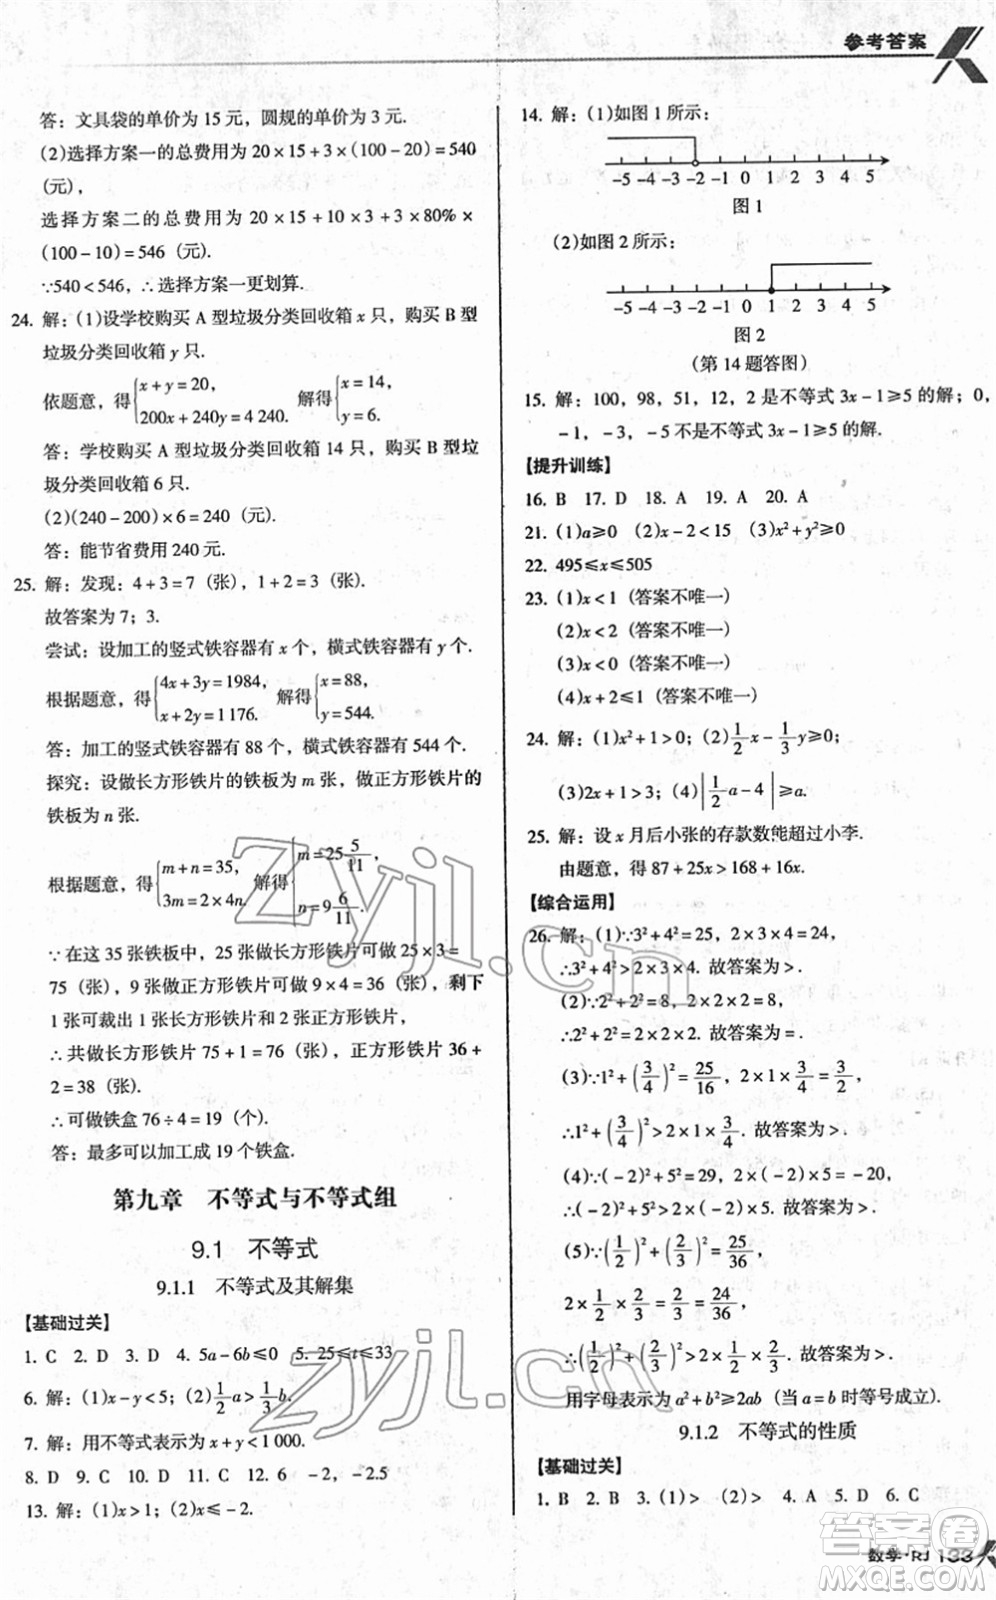 参考答案
答：文具袋的单价为 15 元，圆规的单价为 3 元.
(2)选择方案一的总费用为 20×15+3×(100-20)=540
(元)，
选择方案二的总费用为 20×15+10×3+3×80%×
(100-10)=546 (元).
∵540<546，∴选择方案一更划算.
24. 解：(1)设学校购买 A 型垃圾分类回收箱 x 只，购买 B 型
垃圾分类回收箱 y 只.
依题意，得{x+y=20, 200x+240y=4 240. 解得{x=14, y=6.
答：学校购买 A 型垃圾分类回收箱 14 只，购买 B 型垃
圾分类回收箱 6 只.
(2)(240-200)×6=240 (元).
答：能节省费用 240 元.
25. 解：发现：4+3=7 (张)，1+2=3 (张).
故答案为 7；3.
尝试：设加工的竖式铁容器有 x 个，横式铁容器有 y 个.
根据题意，得{4x+3y=1984, x+2y=1 176. 解得{x=88, y=544.
答：加工的竖式铁容器有 88 个，横式铁容器有 544 个.
探究：设做长方形铁片的铁板为 m 张，做正方形铁片的
铁板为 n 张.
根据题意，得{m+n=35, 3m=2×4n. 解得{m=25 5/11, n=9 6/11.
∵在这 35 张铁板中，25 张做长方形铁片可做 25×3=
75 (张)，9 张做正方形铁片可做 9×4=36 (张)，剩下
1 张可裁出 1 张长方形铁片和 2 张正方形铁片，
∴共做长方形铁片 75+1=76 (张)，正方形铁片 36+
2=38 (张).
∴可做铁盒 76÷4=19 (个).
答：最多可以加工成 19 个铁盒.
第九章 不等式与不等式组
9.1 不等式
9.1.1 不等式及其解集
【基础过关】
1. C 2. D 3. D 4. 5a-6b≤0 5. 25≤t≤33
6. 解：(1)x-y<5；(2)1/2 a>1/3 b.
7. 解：用不等式表示为 x+y<1 000.
8. D 9. C 10. C 11. D 12. 6 -2，-2.5
13. 解：(1)x>1；(2)x≤-2.
14. 解：(1)如图 1 所示：
-5 -4 -3 -2 -1 0 1 2 3 4 5
图 1
(2)如图 2 所示：
-5 -4 -3 -2 -1 0 1 2 3 4 5
图 2
(第 14 题答图)
15. 解：100，98，51，12，2 是不等式 3x-1≥5 的解；0，
-1，-3，-5 不是不等式 3x-1≥5 的解.
【提升训练】
16. B 17. D 18. A 19. A 20. A
21. (1)a≥0 (2)x-2<15 (3)x²+y²≥0
22. 495≤x≤505
23. (1)x<1 (答案不唯一)
(2)x<2 (答案不唯一)
(3)x<0 (答案不唯一)
(4)x+2≤1 (答案不唯一)
24. 解：(1)x²+1>0；(2)1/2 x-1/3 y≥0；
(3)2x+1>3；(4)|1/2 a-4|≥a.
25. 解：设 x 月后小张的存款数能超过小李.
由题意，得 87+25x>168+16x.
【综合运用】
26. 解：(1)∵3²+4²=25，2×3×4=24，
∴3²+4²>2×3×4. 故答案为>.
(2)∵2²+2²=8，2×2×2=8，
∴2²+2²=2×2×2. 故答案为=.
(3)∵1²+(3/4)²=25/16，2×1×3/4=3/2，
∴1²+(3/4)²>2×1×3/4. 故答案为>.
(4)∵(-2)²+5²=29，2×(-2)×5=-20，
∴(-2)²+5²>2×(-2)×5. 故答案为>.
(5)∵(1/2)²+(2/3)²=25/36，
2×1/2×2/3=24/36，
∴(1/2)²+(2/3)²>2×1/2×2/3. 故答案为>.
用字母表示为 a²+b²≥2ab (当 a=b 时等号成立).
9.1.2 不等式的性质
【基础过关】
1. B 2. B 3. (1)> (2)> 4. A 5. D 6. C
数学·RJ 133
zyjl.cn
zyjl.cn
答案卷
MXQE.COM